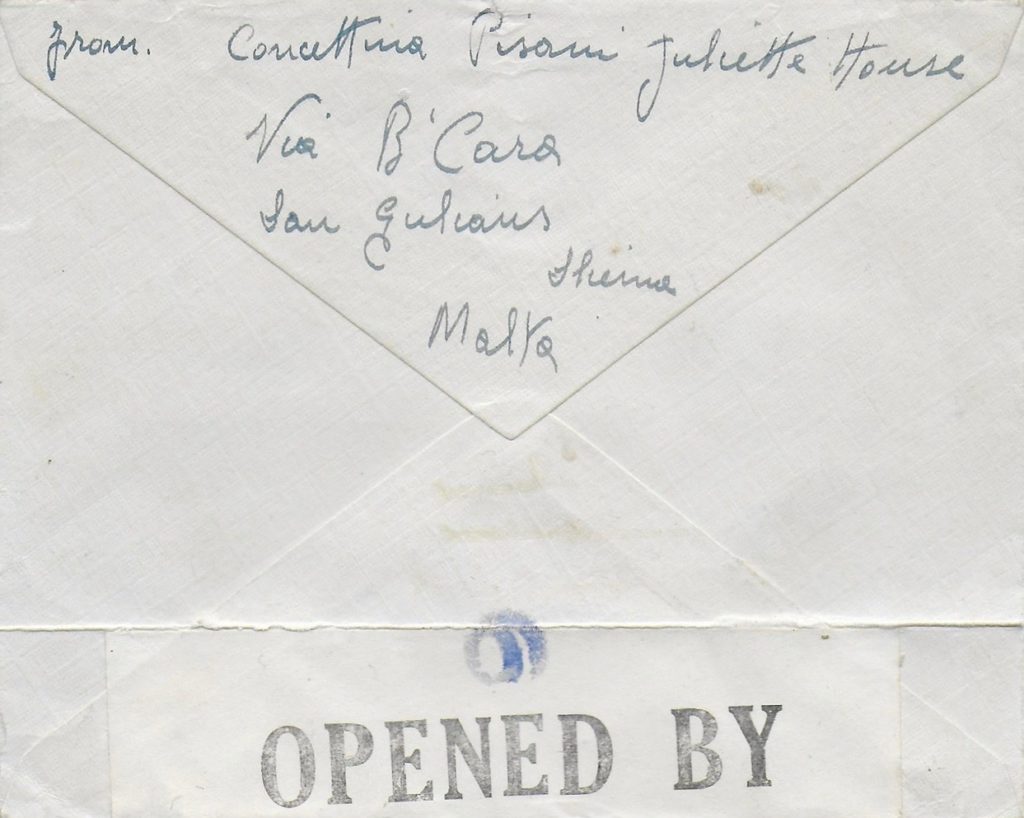 From. Concettina Pisani Juliette House
Via B'Cara
San Gulians
Sliema
Malta
OPENED BY